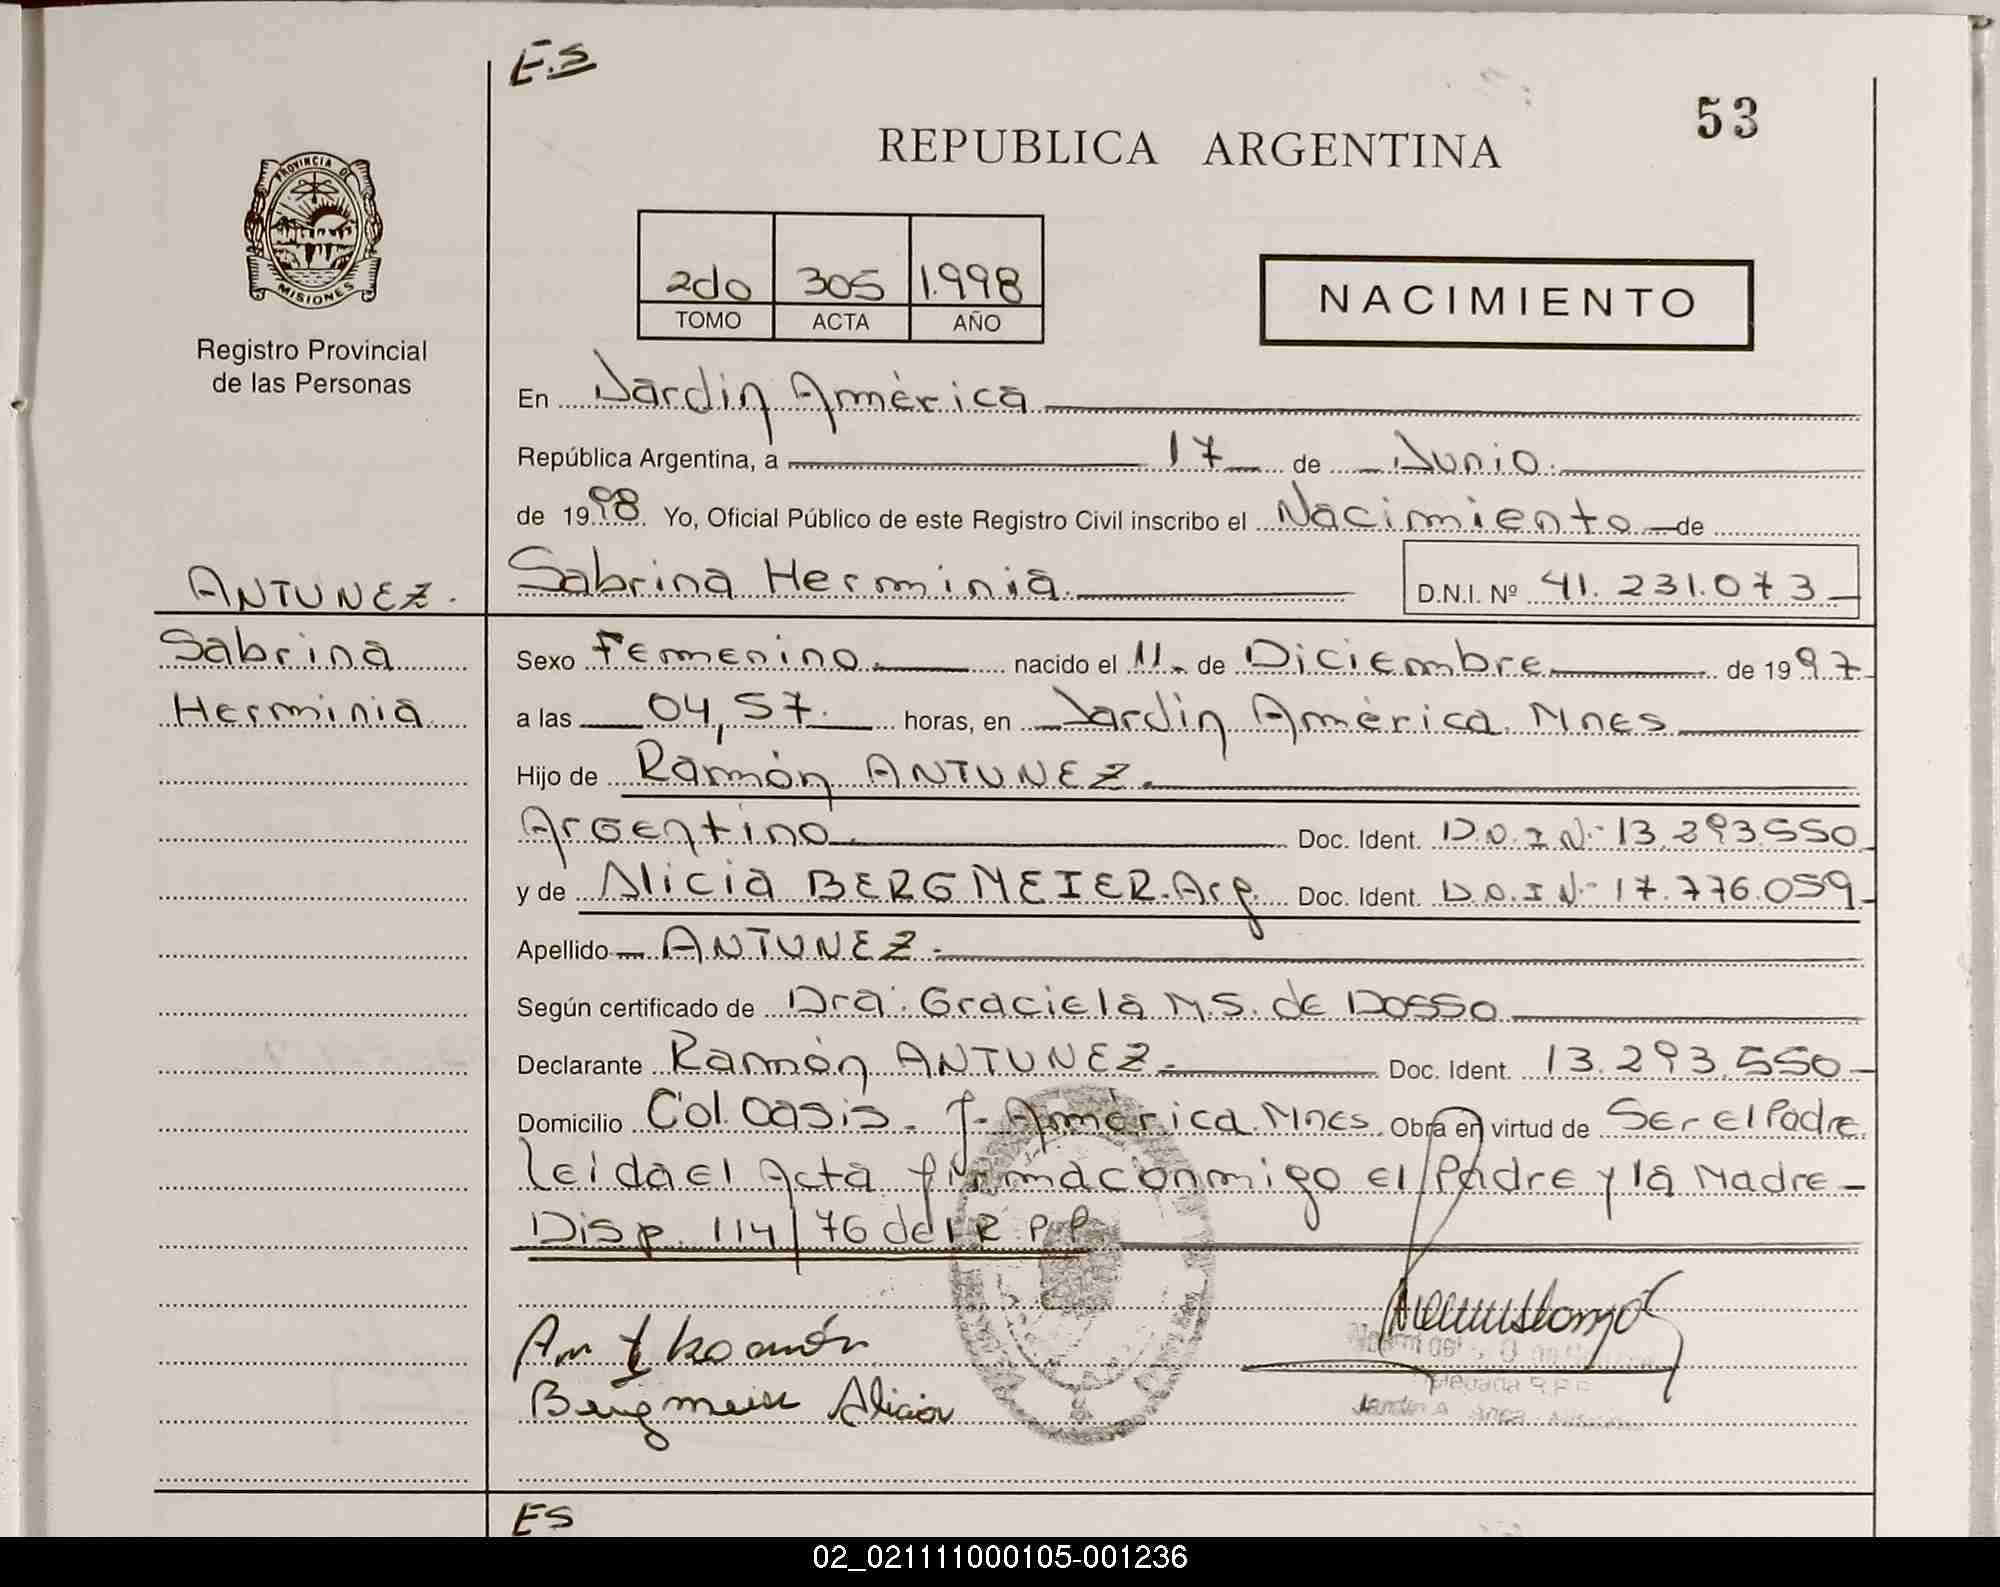 E.S
53
REPUBLICA ARGENTINA
PROVINCIA DE
MISIONES
Registro Provincial
de las Personas
2do 305 1.998
TOMO ACTA AÑO
NACIMIENTO
En Jardín América
República Argentina, a 17 de Junio.
de 1998. Yo, Oficial Público de este Registro Civil inscribo el Nacimiento de
ANTUNEZ.
Sabrina Herminia
Sabrina Herminia. D.N.I. Nº 41.231.073
Sexo Femenino. nacido el 11. de Diciembre de 1997
a las 04,57. horas, en Jardín América. Mnes
Hijo de Ramón ANTUNEZ.
Argentino. Doc. Ident. D.N.I Nº 13.293.550
y de Alicia BERGMEIER. Arg. Doc. Ident. D.N.I Nº 17.776.059
Apellido ANTUNEZ.
Según certificado de Dra. Graciela M.S. de Dosso
Declarante Ramón ANTUNEZ. Doc. Ident. 13.293.550
Domicilio Col. Oasis. J. América. Mnes. Obra en virtud de Ser el Padre
Leida el Acta firma conmigo el Padre y la Madre
Disp. 114/76 del R.P.P.
Ant Ramón
Bergmeier Alicia
ES
02_021111000105-001236